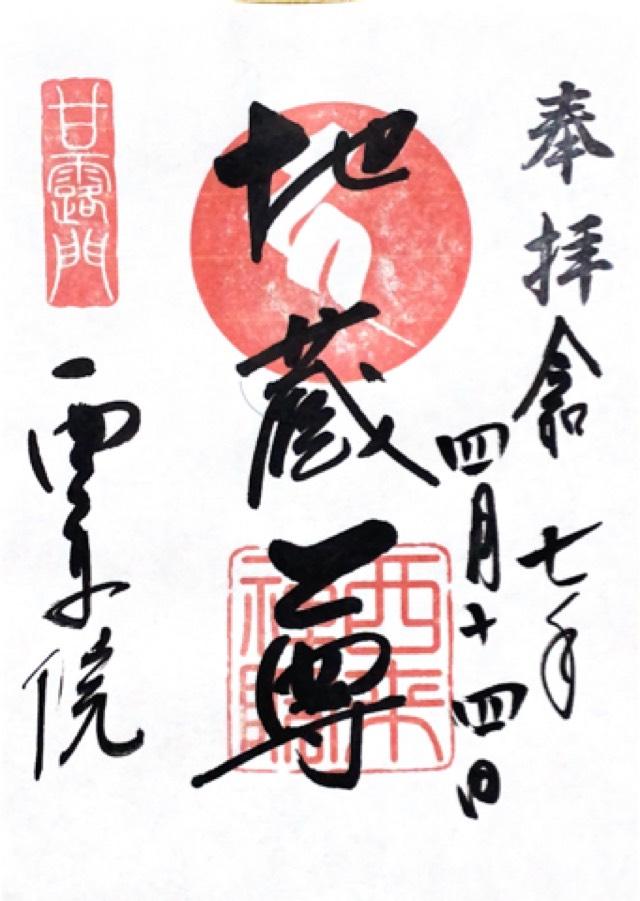 奉拝
令和七年
四月十四日
地蔵尊
西来
甘露門
院